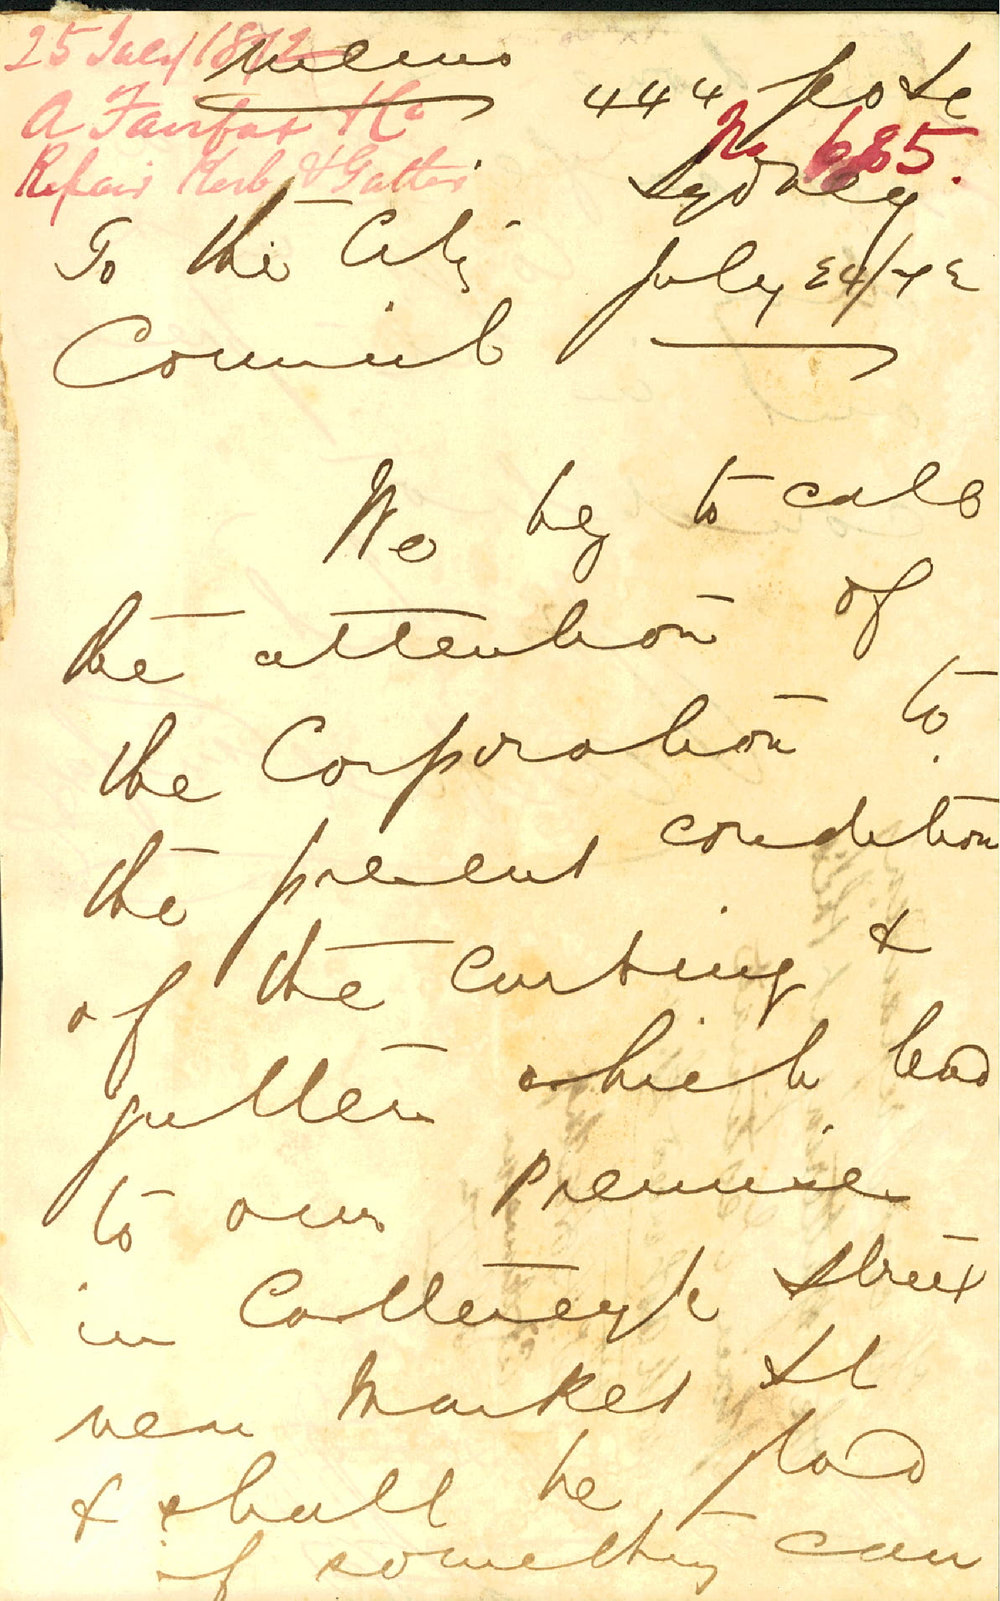 25 July 1872
A Fairfax & Co
Repair Kerb & Gutter
Memo
444 Pitt St
No 685.
Sydney
To the City
July 24/72
Council
We beg to call
the attention of
the Corporation to
the present condition
of the curbing &
gutter which lead
to our premises
in Castlereagh Street
near Market St
& shall be glad
if something can